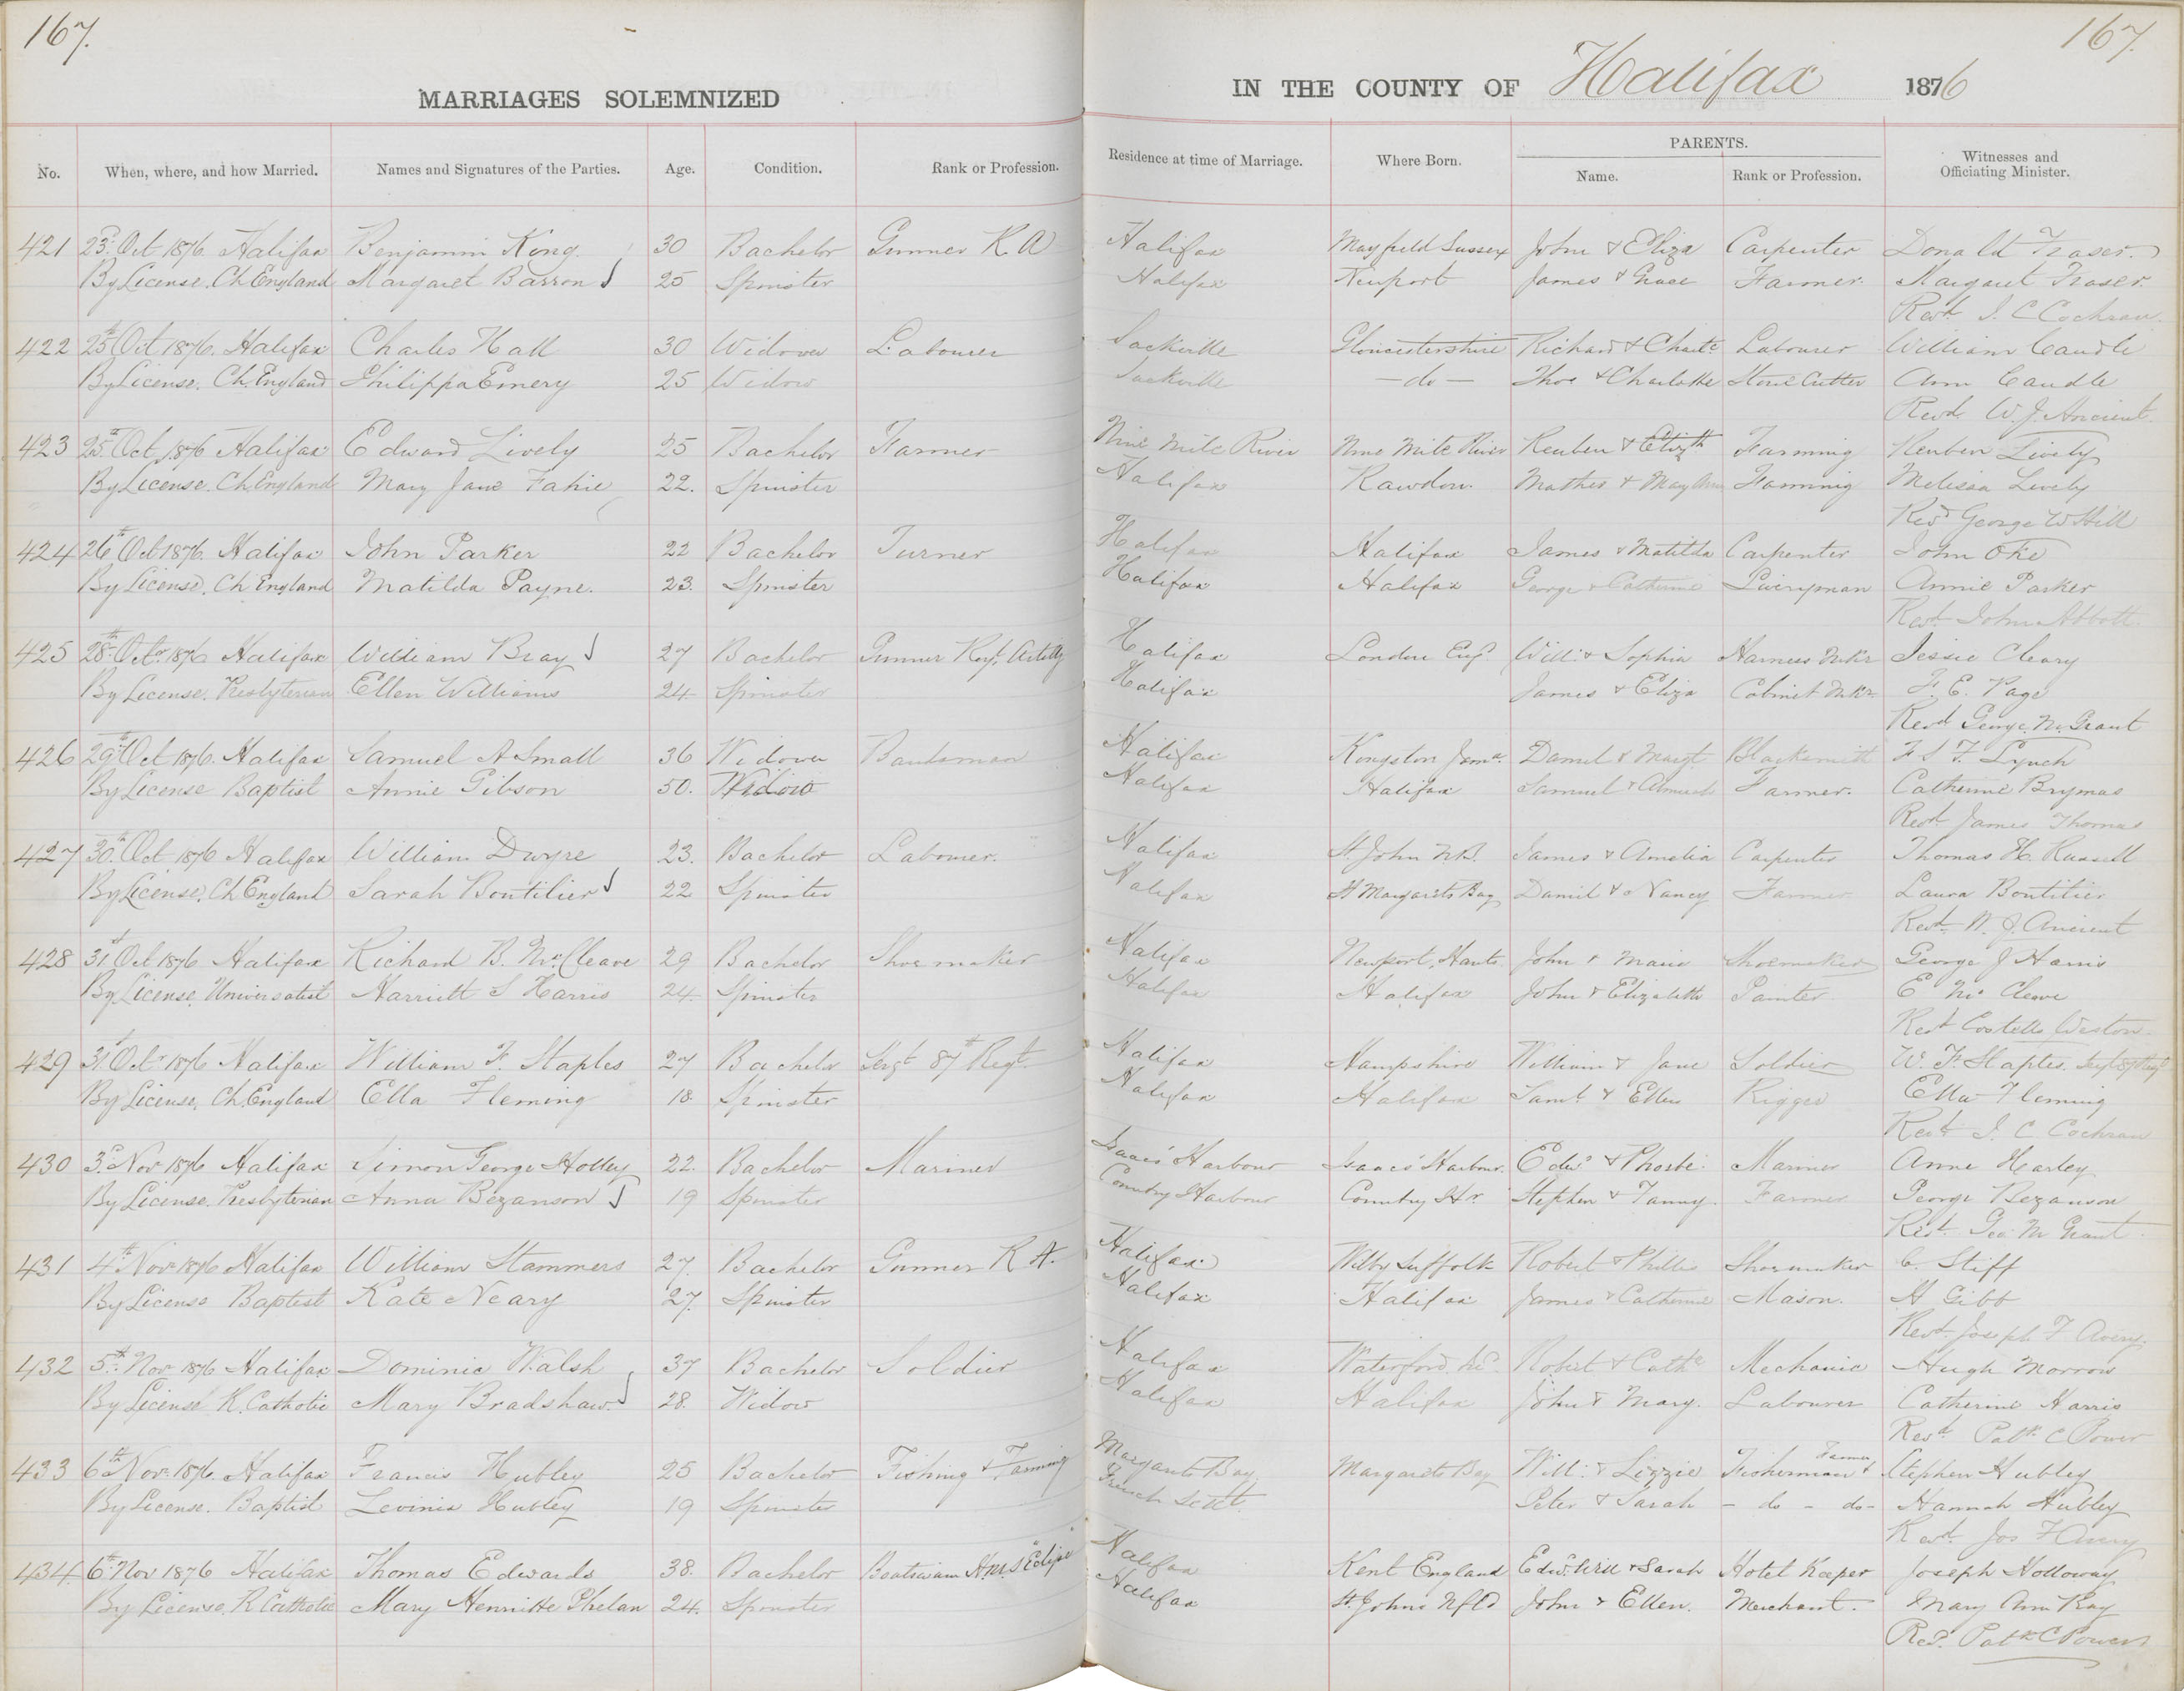 167.
167.
MARRIAGES SOLEMNIZED
IN THE COUNTY OF Halifax 1876
No. When, where, and how Married. Names and Signatures of the Parties. Age. Condition. Rank or Profession. Residence at time of Marriage. Where Born. PARENTS. Name. Rank or Profession. Witnesses and Officiating Minister.
421 23d Oct 1876 Halifax Benjamin King 30 Bachelor Gunner R A Halifax Mayfield Sussex John & Eliza Carpenter Donald Fraser
By License. Ch England Margaret Barron 25 Spinster Halifax Newport James & Grace Farmer. Margaret Fraser
Revd. J. C Cochran.
422 25th Oct 1876. Halifax Charles Hall 30 Widower Labourer Sackville Gloucestershire Richard & Charlte Labourer William Caudle
By License. Ch England Philippa Emery 25 Widow Sackville - do - Thos & Charlotte Stone Cutter Ann Caudle
Revd W. J. Ancient.
423 25th Oct. 1876 Halifax Edward Lively 25 Bachelor Farmer Nine Mile River Nine Mile River Reuben & Elizth Farming Reuben Lively
By License. Ch England Mary Jane Fahie 22. Spinster Halifax Rawdon. & Mary Ann Farming Melissa Lively
Revd George W Hill
424 26th Oct 1876. Halifax John Parker 22 Bachelor Turner Halifax Halifax James & Matilda Carpenter John Oke
By License. Ch England Matilda Payne. 23. Spinster Halifax Halifax George & Catherine Liveryman Annie Parker
Revd. John Abbott.
425 28th Octr. 1876 Halifax William Bray 27 Bachelor Gunner Royl Artilly Halifax London Eng. Will: & Sophia Harness Mkr Jessie Cleary
By License. Presbyterian Ellen Williams 24. Spinster Halifax James & Eliza Cabinet Mkr. F. E. Page
Revd George M. Grant
426 29th Oct 1876. Halifax Samuel A Small 36 Widower Bandsman Halifax Kingston Jama. Daniel & Margt Blacksmith F S F. Lynch
By License Baptist Annie Gibson 50. Widow Halifax Halifax Samuel & Farmer. Catherine Brymas
Revd. James Thomas
427 30th Oct 1876 Halifax William Dwyre 23. Bachelor Labourer. Halifax St. John N.B. James & Amelia Carpenter Thomas H. Russell
By License. Ch England Sarah Boutilier 22 Spinster Halifax St Margarets Bay Daniel & Nancy Farmer Laura Boutilier
Revd. W. J. Ancient
428 31st Oct 1876 Halifax Richard B. McCleave 29 Bachelor Shoemaker Halifax Newport, Hants. John & Maria Shoemaker George J Harris
By License. Universalist Harriett S Harris 24. Spinster Halifax Halifax John & Elizabeth Painter E Mc Cleave
Revd Costello Weston
429 31st Octr 1876 Halifax William F. Staples 27 Bachelor Sergt 87th Regt. Halifax Hampshire William & Jane Soldier W. F. Staples. Sergt 87 Regt
By License. Ch. England Ella Fleming 18 Spinster Halifax Halifax Saml. & Ellen Rigger Ella Fleming
Revd J. C Cochran
430 3d Nov 1876 Halifax Simon George Holley 22. Bachelor Mariner Isaacs' Harbour Isaacs' Harbour. Edwd & Phoebe. Mariner Anne Harley
By License. Presbyterian Anna Bezanson 19 Spinster Country Harbour Country Hr. Stephen & Fanny. Farmer George Bezanson
Revd. Geo M Grant.
431 4th Nov 1876 Halifax William Stammers 27. Bachelor Gunner R A. Halifax Wilby Suffolk Robert & Phillis Shoemaker C. Stiff
By License Baptist Kate Neary 27. Spinster Halifax Halifax James & Catherine Mason. H Gibb
Revd. Joseph F Avery.
432 5th Nov 1876 Halifax Dominic Walsh 37 Bachelor Soldier Halifax Waterford. Ird. Robert & Cathe Mechanic Hugh Morrow
By License R. Catholic Mary Bradshaw. 28. Widow Halifax Halifax John & Mary. Labourer Catherine Harris
Revd. Patk C Power
433 6th Nov. 1876 Halifax Francis Hubley 25 Bachelor Fishing & Farming Margarets Bay Margarets Bay Will: & Lizzie Fisherman & Farmer Stephen Hubley
By License. Baptist Levinia Hubley 19 Spinster French Settt. Peter & Sarah - do - do - Hannah Hubley
Revd. Jos F Avery
434. 6th Nov 1876 Halifax Thomas Edwards 38. Bachelor Boatswain H.M.S "Eclipse" Halifax Kent England Edwd. Will & Sarah Hotel Keeper Joseph Holloway
By License. R Catholic Mary Henriette Phelan 24. Spinster Halifax St. Johns Nfld John & Ellen. Merchant. Mary Ann Ray
Revd. Patk C Power